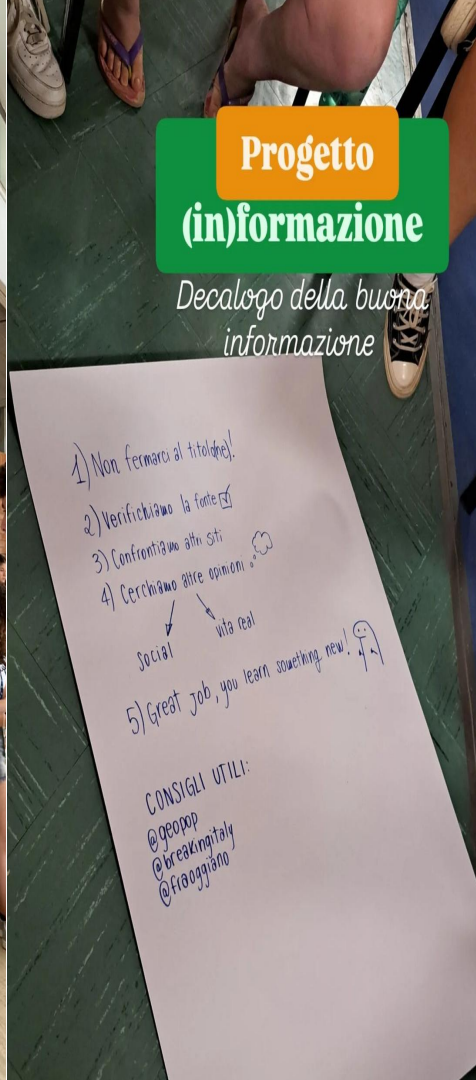 Progetto
(in)formazione
Decalogo della buona
informazione
1) Non fermarci al titolo(ne)!
2) Verifichiamo la fonte
3) Confrontiamo altri siti
4) Cerchiamo altre opinioni
social
vita real
5) Great job, you learn something new!
CONSIGLI UTILI:
@geopop
@breakingitaly
@fraoggiano